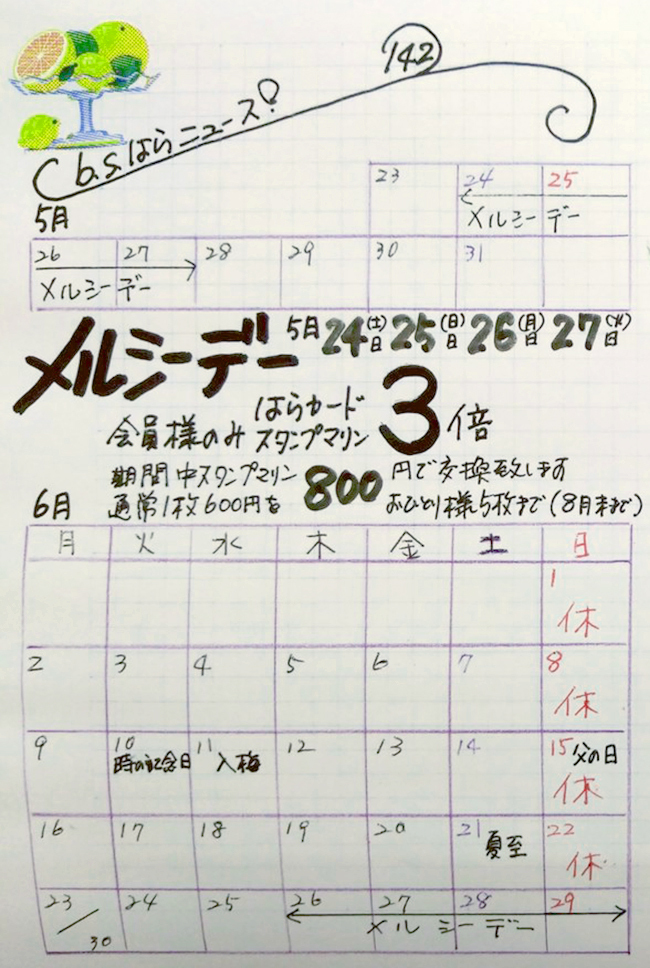 142
b.s.はらニュース!
5月
23 24 25
メルシーデー
26 27 28 29 30 31
メルシーデー
メルシーデー 5月24日(土)25日(日)26日(月)27日(火)
会員様のみ はらカード スタンプマリン 3倍
期間中スタンプマリン
通常1枚600円を 800 円で交換致します
おひとり様5枚まで(8月末まで)
6月
月 火 水 木 金 土 日
1
休
2 3 4 5 6 7 8
休
9 10 11 12 13 14 15 父の日
時の記念日 入梅 休
16 17 18 19 20 21 22
夏至 休
23/30 24 25 26 27 28 29
メルシーデー